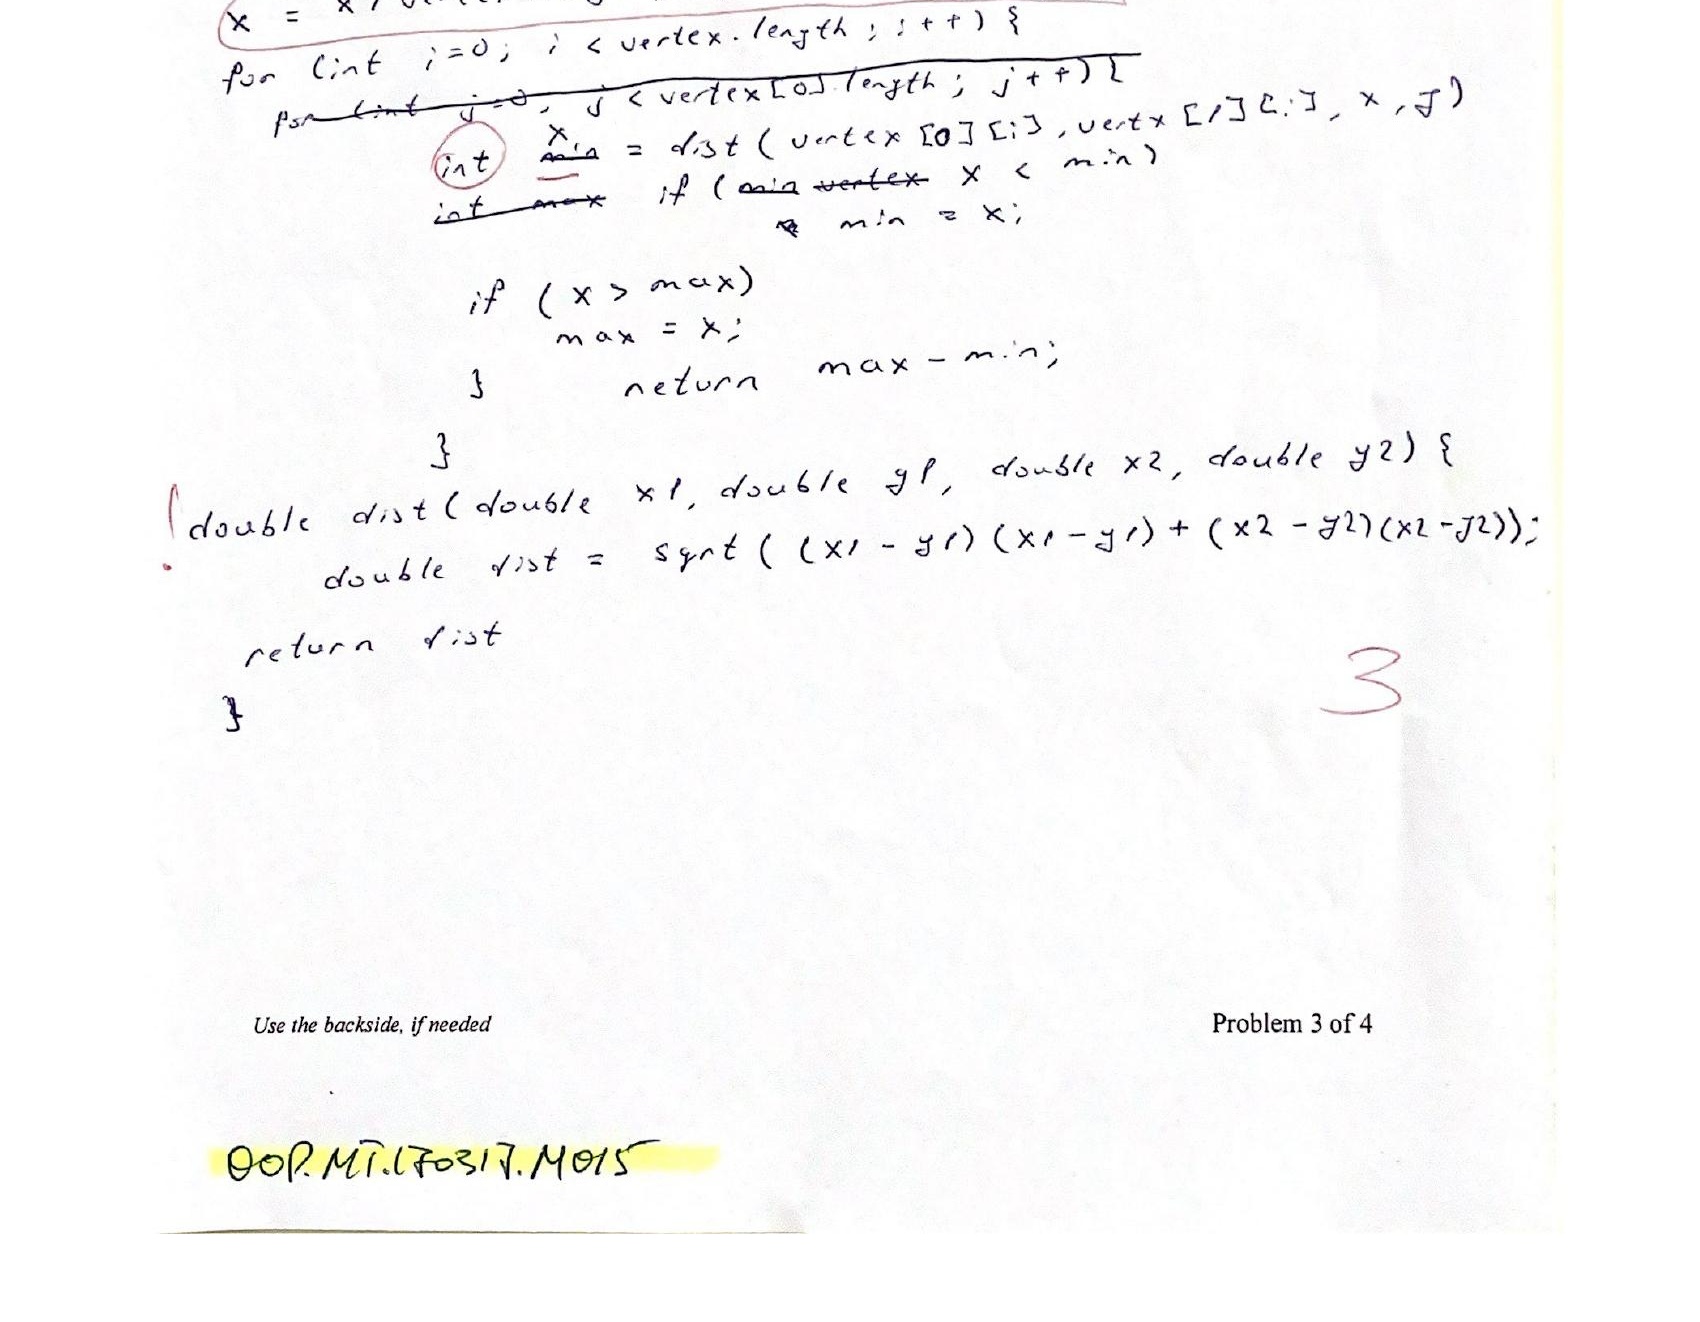 x = x /
for (int i=0; i < vertex.length; i++) {
for (int j=0, j < vertex[0].length; j++) {
int min x = dist (vertex [0][i], vertx [1][i], x, y)
int max if (min vertex x < min)
min = x;
if (x > max)
max = x;
} return max - min;
}
double dist (double x1, double y1, double x2, double y2) {
double dist = sqrt ( (x1 - y1) (x1 - y1) + (x2 - y2)(x2 - y2));
return dist
}
3
Use the backside, if needed Problem 3 of 4
OOP.MT.170317.M015